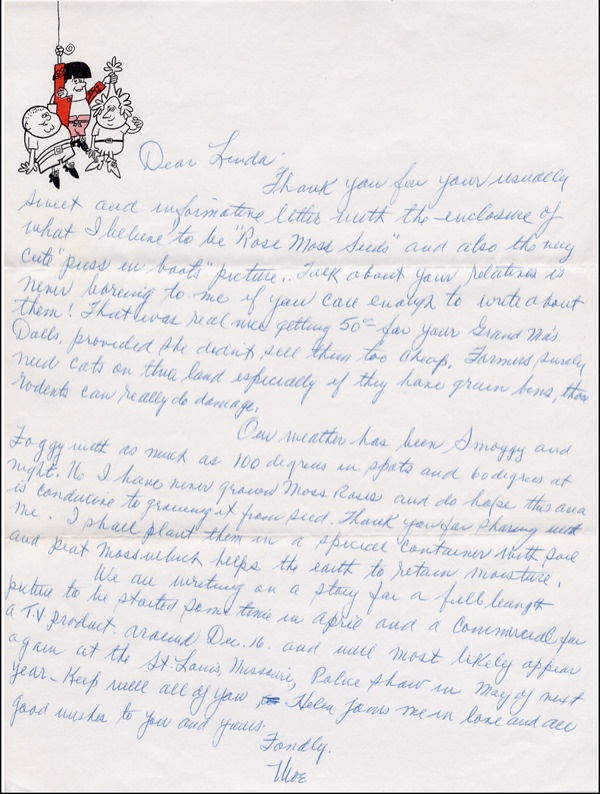 Dear Linda:
Thank you for your usually
sweet and informative letter with the enclosure of
what I believe to be "Rose Moss Seeds" and also the very
cute "puss in boots" picture. Talk about your relatives is
never boreing to me if you care enough to write about
them! That was real nice getting 50⁰⁰ for your Grand Ma's
Dolls, provided she didn't sell them too cheap. Farmers, surely
need cats on their land especially if they have grain bins, those
rodents can really do damage.
Our weather has been Smoggy and
Foggy with as much as 100 degrees in spots and 60 degrees at
night. No I have never grown Moss Roses and do hope this area
is conducive to growing it from seed. Thank you for sharing with
me. I shall plant them in a special container with soil
and peat moss which helps the earth to retain moisture.
We are writing on a story for a full leangth
picture to be started some time in april and a commercial for
a T.V product. around Dec. 16. and will most likely appear
again at the St. Louis, Missouri, Police Show in May of next
year - Keep well all of you Helen joins me in love and all
good wishes to you and yours.
Fondly.
Moe